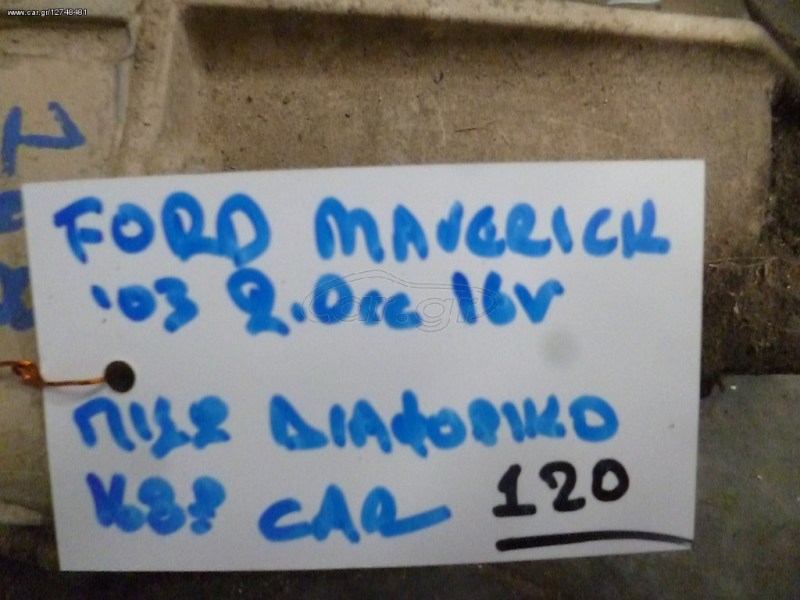 www.car.gr/12748481
FORD MAVERICK
'03 2.0cc 16v
ΠΙΣΩ ΔΙΑΦΟΡΙΚΟ
CAR 120